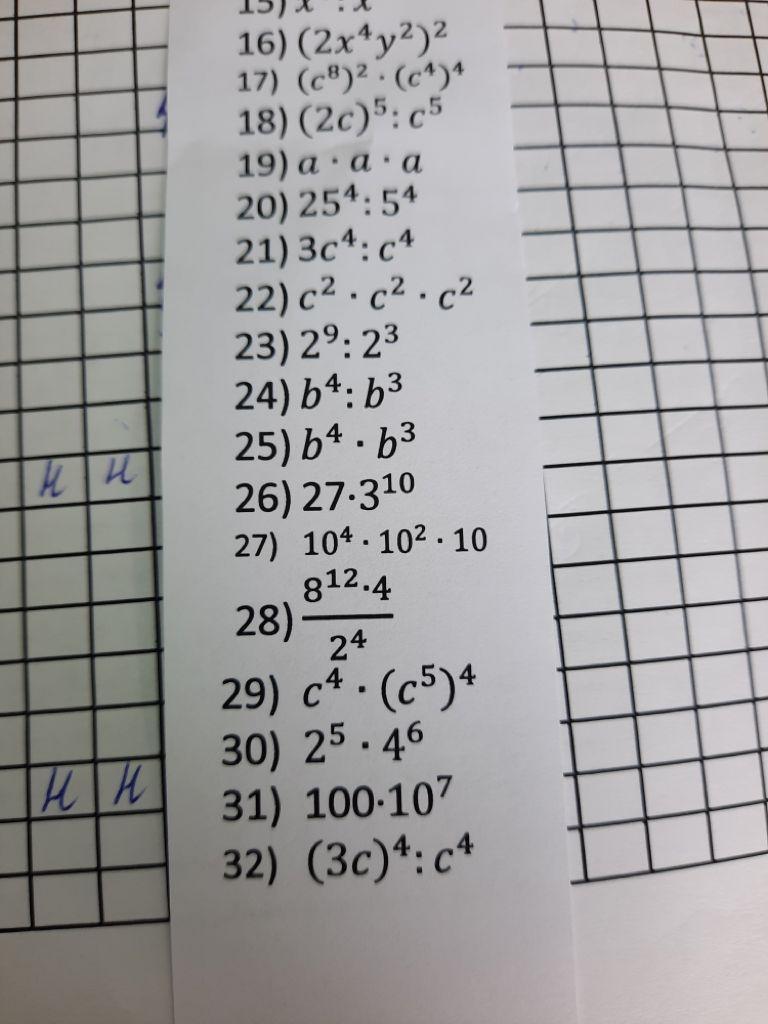 16) (2x⁴y²)²
17) (c⁸)² · (c⁴)⁴
18) (2c)⁵ : c⁵
19) a · a · a
20) 25⁴ : 5⁴
21) 3c⁴ : c⁴
22) c² · c² · c²
23) 2⁹ : 2³
24) b⁴ : b³
25) b⁴ · b³
26) 27·3¹⁰
27) 10⁴ · 10² · 10
28) 8¹²·4
2⁴
29) c⁴ · (c⁵)⁴
30) 2⁵ · 4⁶
31) 100·10⁷
32) (3c)⁴ : c⁴
н н
н н